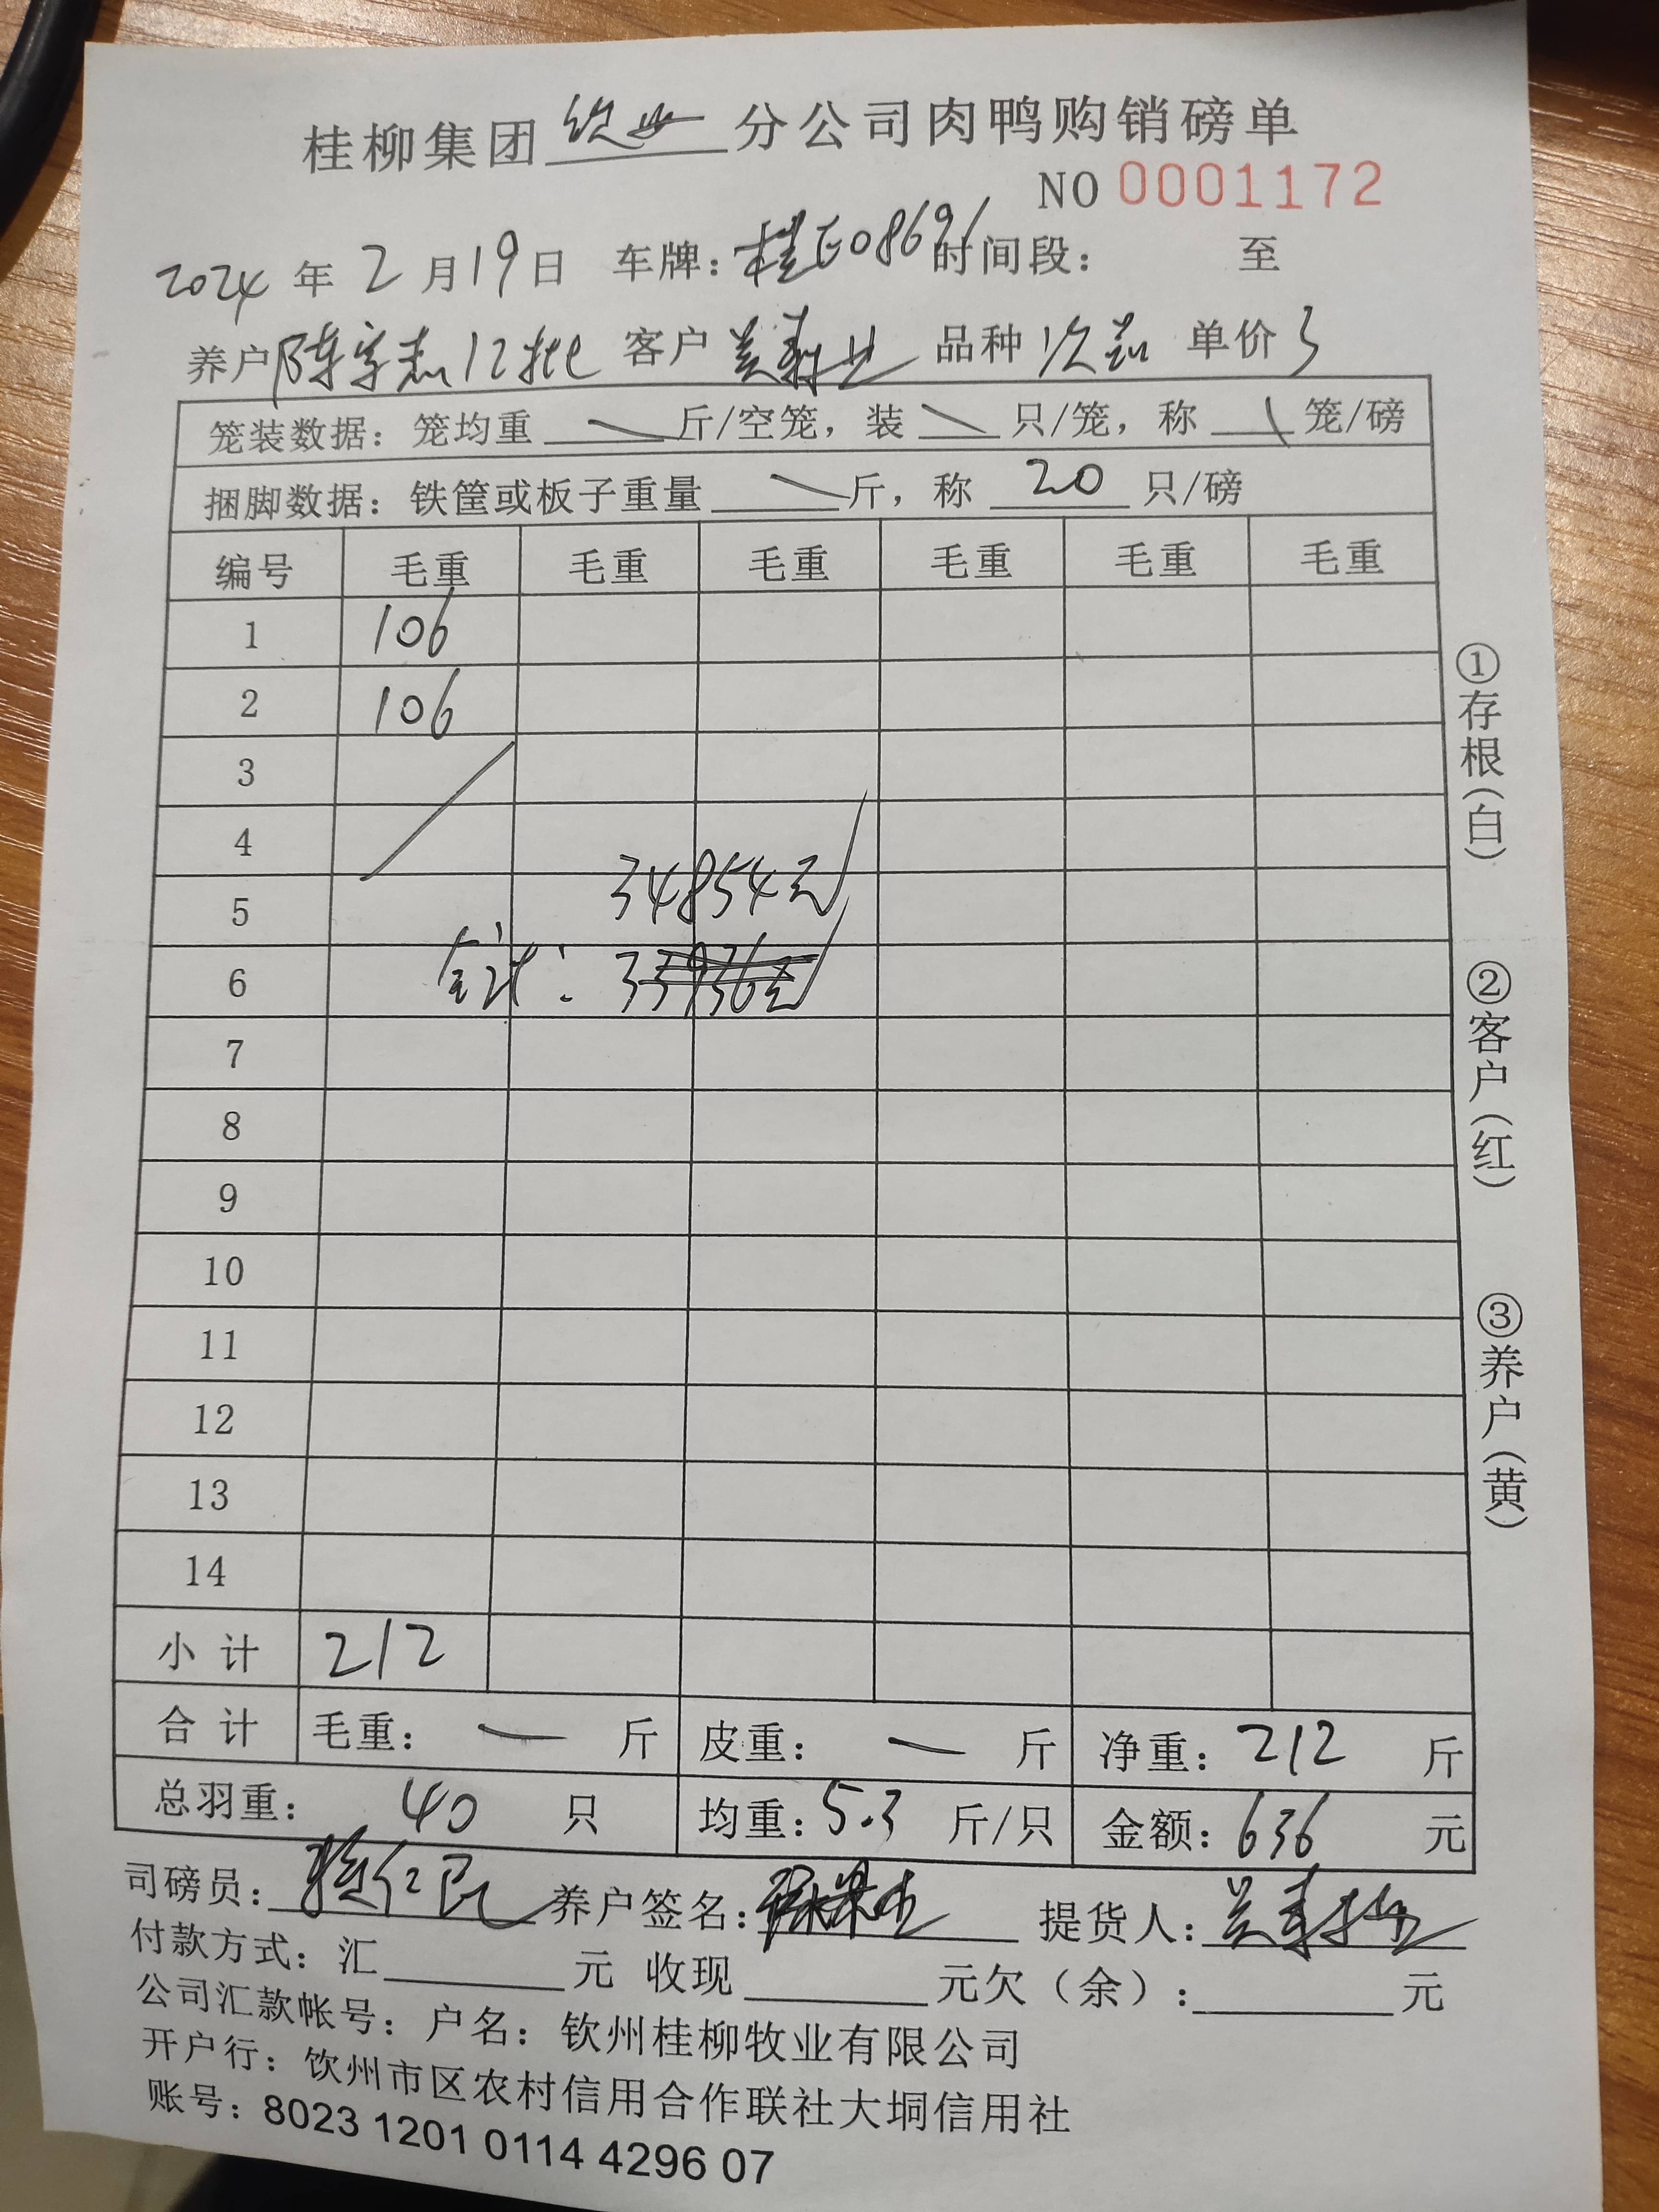 桂柳集团 钦州 分公司肉鸭购销磅单
NO 0001172
2024 年 2 月 19 日 车牌: 桂E08696 时间段: 至
养户 12批 客户 品种 次品 单价 3
笼装数据: 笼均重 斤/空笼, 装 只/笼, 称 笼/磅
捆脚数据: 铁筐或板子重量 斤, 称 20 只/磅
编号 毛重 毛重 毛重 毛重 毛重 毛重
1 106
2 106
3
4
34854元
5
合计: 33936元
6
7
8
9
10
11
12
13
14
小计 212
合计 毛重: 一 斤 皮重: 一 斤 净重: 212 斤
总羽重: 40 只 均重: 5.3 斤/只 金额: 636 元
司磅员: 养户签名: 提货人:
付款方式: 汇 元 收现 元欠(余): 元
公司汇款帐号: 户名: 钦州桂柳牧业有限公司
开户行: 钦州市区农村信用合作联社大垌信用社
账号: 8023 1201 0114 4296 07
①存根(白)
②客户(红)
③养户(黄)